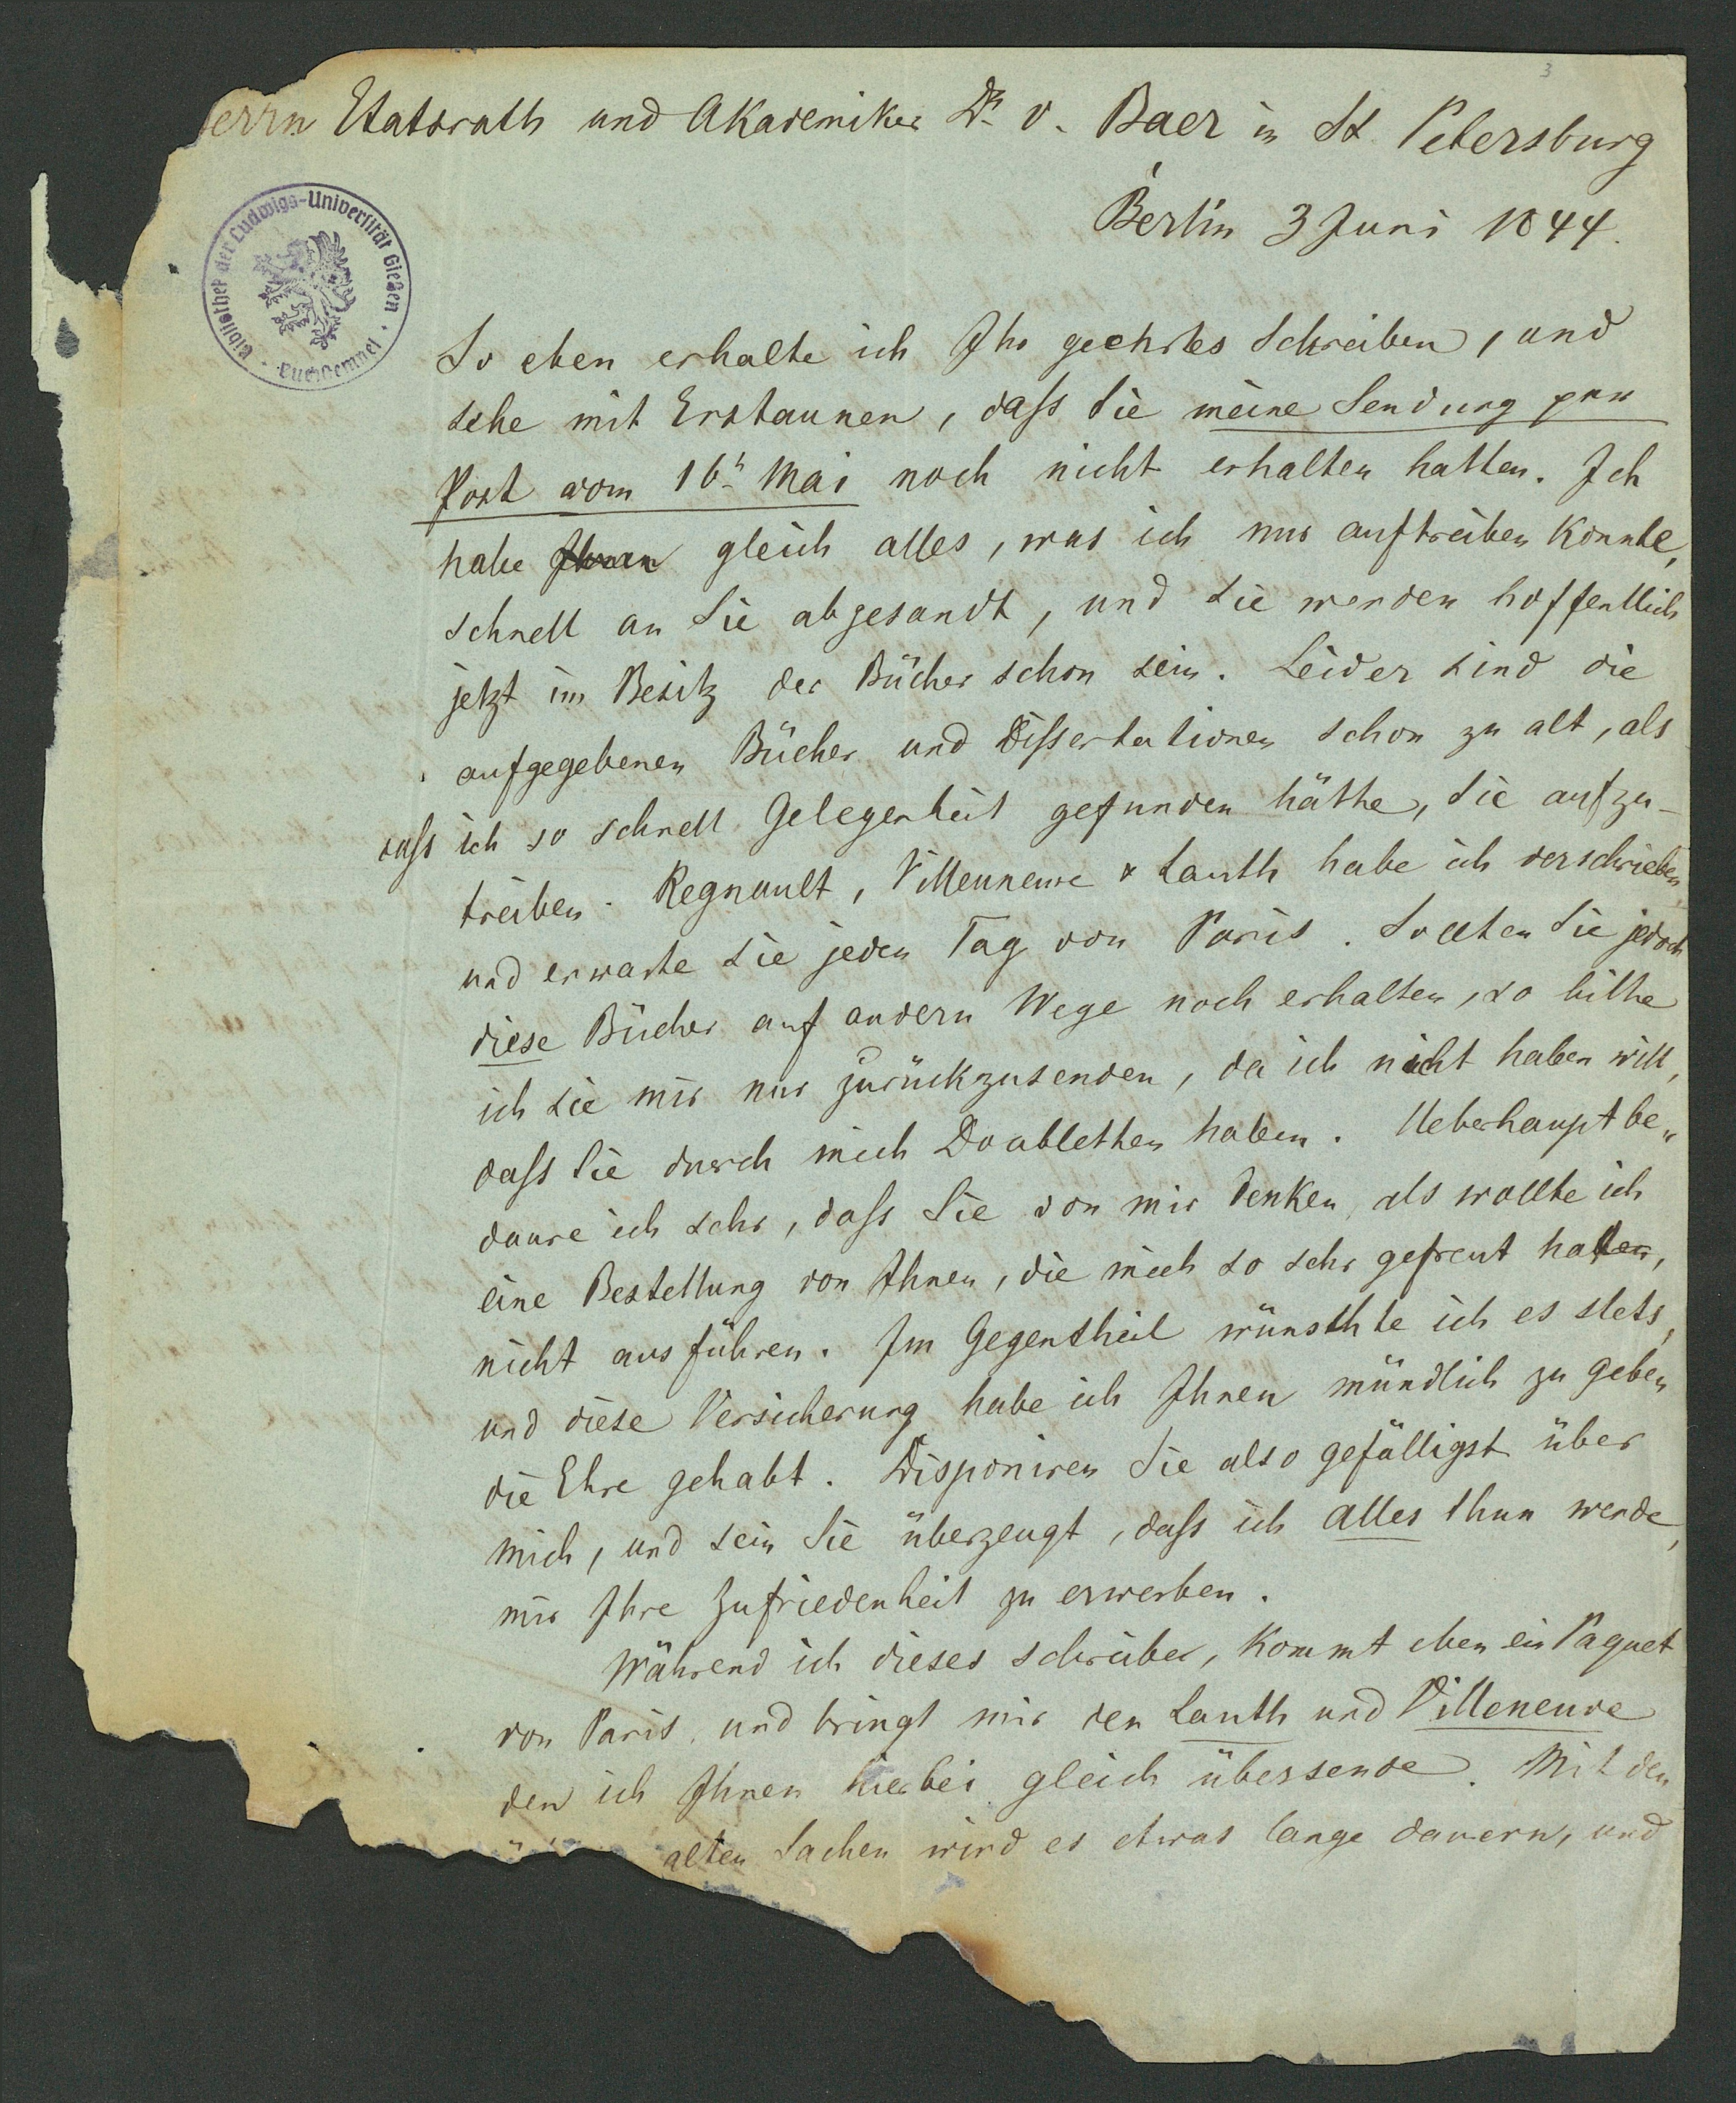 3
errn Etatsrath und Akademiker Dr. v. Baer in St Petersburg
Berlin 3 Juni 1844.
Bibliothek der Ludwigs-Universität Gießen.
So eben erhalte ich Ihr geehrtes Schreiben, und
sehe mit Erstaunen, daſs Sie meine Sendung per
Post vom 16t Mai noch nicht erhalten hatten. Ich
habe Ihnen gleich alles, was ich nur auftreiben konnte,
schnell an Sie abgesandt, und Sie werden hoffentlich
jetzt im Besitz der Bücher schon sein. Leider sind die
aufgegebenen Bücher und Diſsertationen schon zu alt, als
daſs ich so schnell Gelegenheit gefunden hätte, Sie aufzu-
treiben. Regnault, Villeuneuve & Lauth habe ich verschrieben
und erwarte Sie jeden Tag von Paris. Sollten Sie jedoch
diese Bücher auf andern Wege noch erhalten, so bitte
ich Sie mir nur zurückzusenden, da ich nicht haben will,
daſs Sie durch mich Doubletten haben. Ueberhaupt be„
daure ich sehr, daſs Sie von mir denken, als wollte ich
eine Bestellung von Ihnen, die mich so sehr gefreut hatten,
nicht ausführen. Im Gegentheil wünschte ich es stets,
und diese Versicherung habe ich Ihnen mündlich zu geben
die Ehre gehabt. Disponiren Sie also gefälligst über
mich, und sein Sie überzeugt, daſs ich alles thun werde,
mir Ihre Zufriedenheit zu erwerben.
Während ich dieses schreibe, kommt eben ein Paquet
von Paris, und bringt mir den Lauth und Villeneuve
den ich Ihnen hierbei gleich übersende. Mit den
alten Sachen wird es etwas lange dauern, und